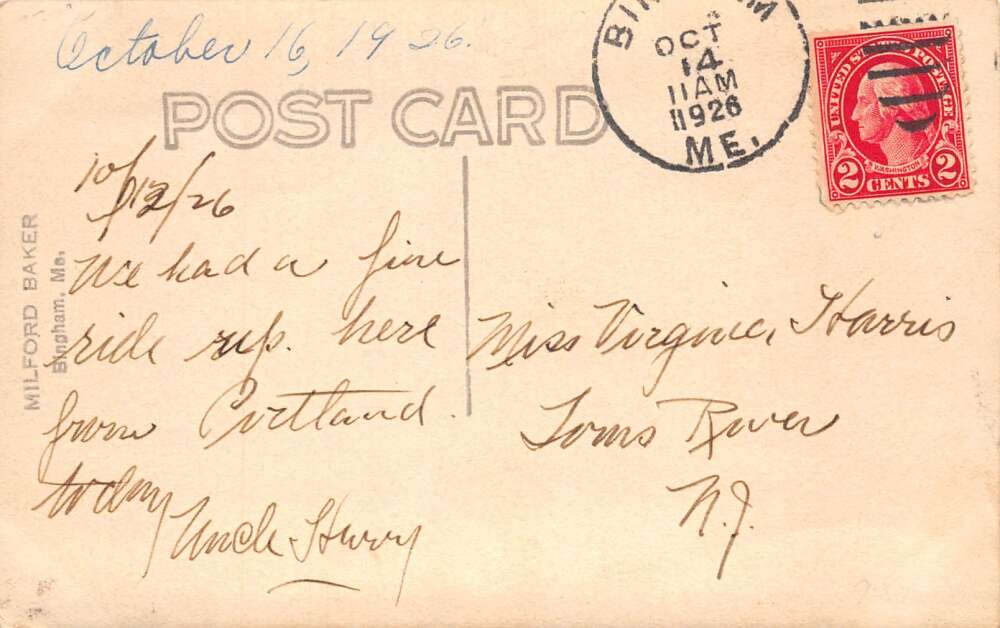 October 16, 1926.
POST CARD
BINGHAM
OCT
14
11 AM
1926
ME.
UNITED STATES POSTAGE
WASHINGTON
2 CENTS 2
MILFORD BAKER
Bingham, Me.
10/12/26
We had a fine
ride up. here
from Portland.
today
Uncle Harry
Miss Virginia Harris
Toms River
N.J.